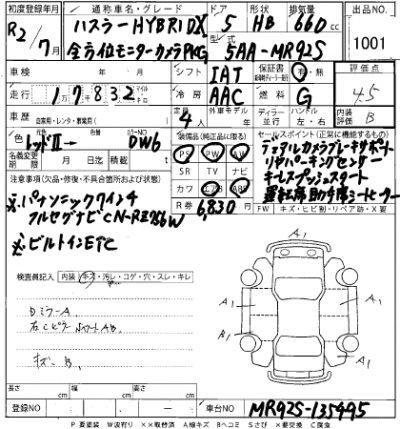 初度登録年月 通称車名・グレード ドア 形状 排気量 出品NO
R2/7月 ハスラーHYBRIDX 5 HB 660cc
全方位モニターカメラPKG 5AA-MR92S 1001
車検 年 月 シフト IAT 保証書 有・無 評価点
走行 17832 冷房 AAC 燃料 G 4.5
車歴 定員 4人 外車モデル ディーラー 並行 ハンドル 左・右 内装評価 B
自家用・レンタ・教習車
色 レッドⅡ カラーNO DW6
装備品(純正品に限る) セールスポイント(正常に機能するもの)
PS PW AW デュアルカメラブレーキサポート
名義変更期限 月 日迄 積載 t SR TV ナビ リヤパーキングセンサー
カワ エアB ABS キーレスプッシュスタート
運転席助手席シートヒーター
R券 6,830円
FW キズ・ヒビ割・リペア跡・X要
注意事項(欠品・修復・不具合箇所および状態)
※パナソニック9インチ
フルセグナビ
※ビルトインETC
検査員記入 内装 キズ・汚レ・コゲ・穴・スレ・キレ
DミラーA
キズ、B
A1
A1
A1
B1
A1
長さ cm 幅 cm 高さ cm
登録NO 車台NO MR92S-135495
P 要塗装 W波有り ××取替済 A線キズ Bヘコミ Sさび ×要交換 C腐食